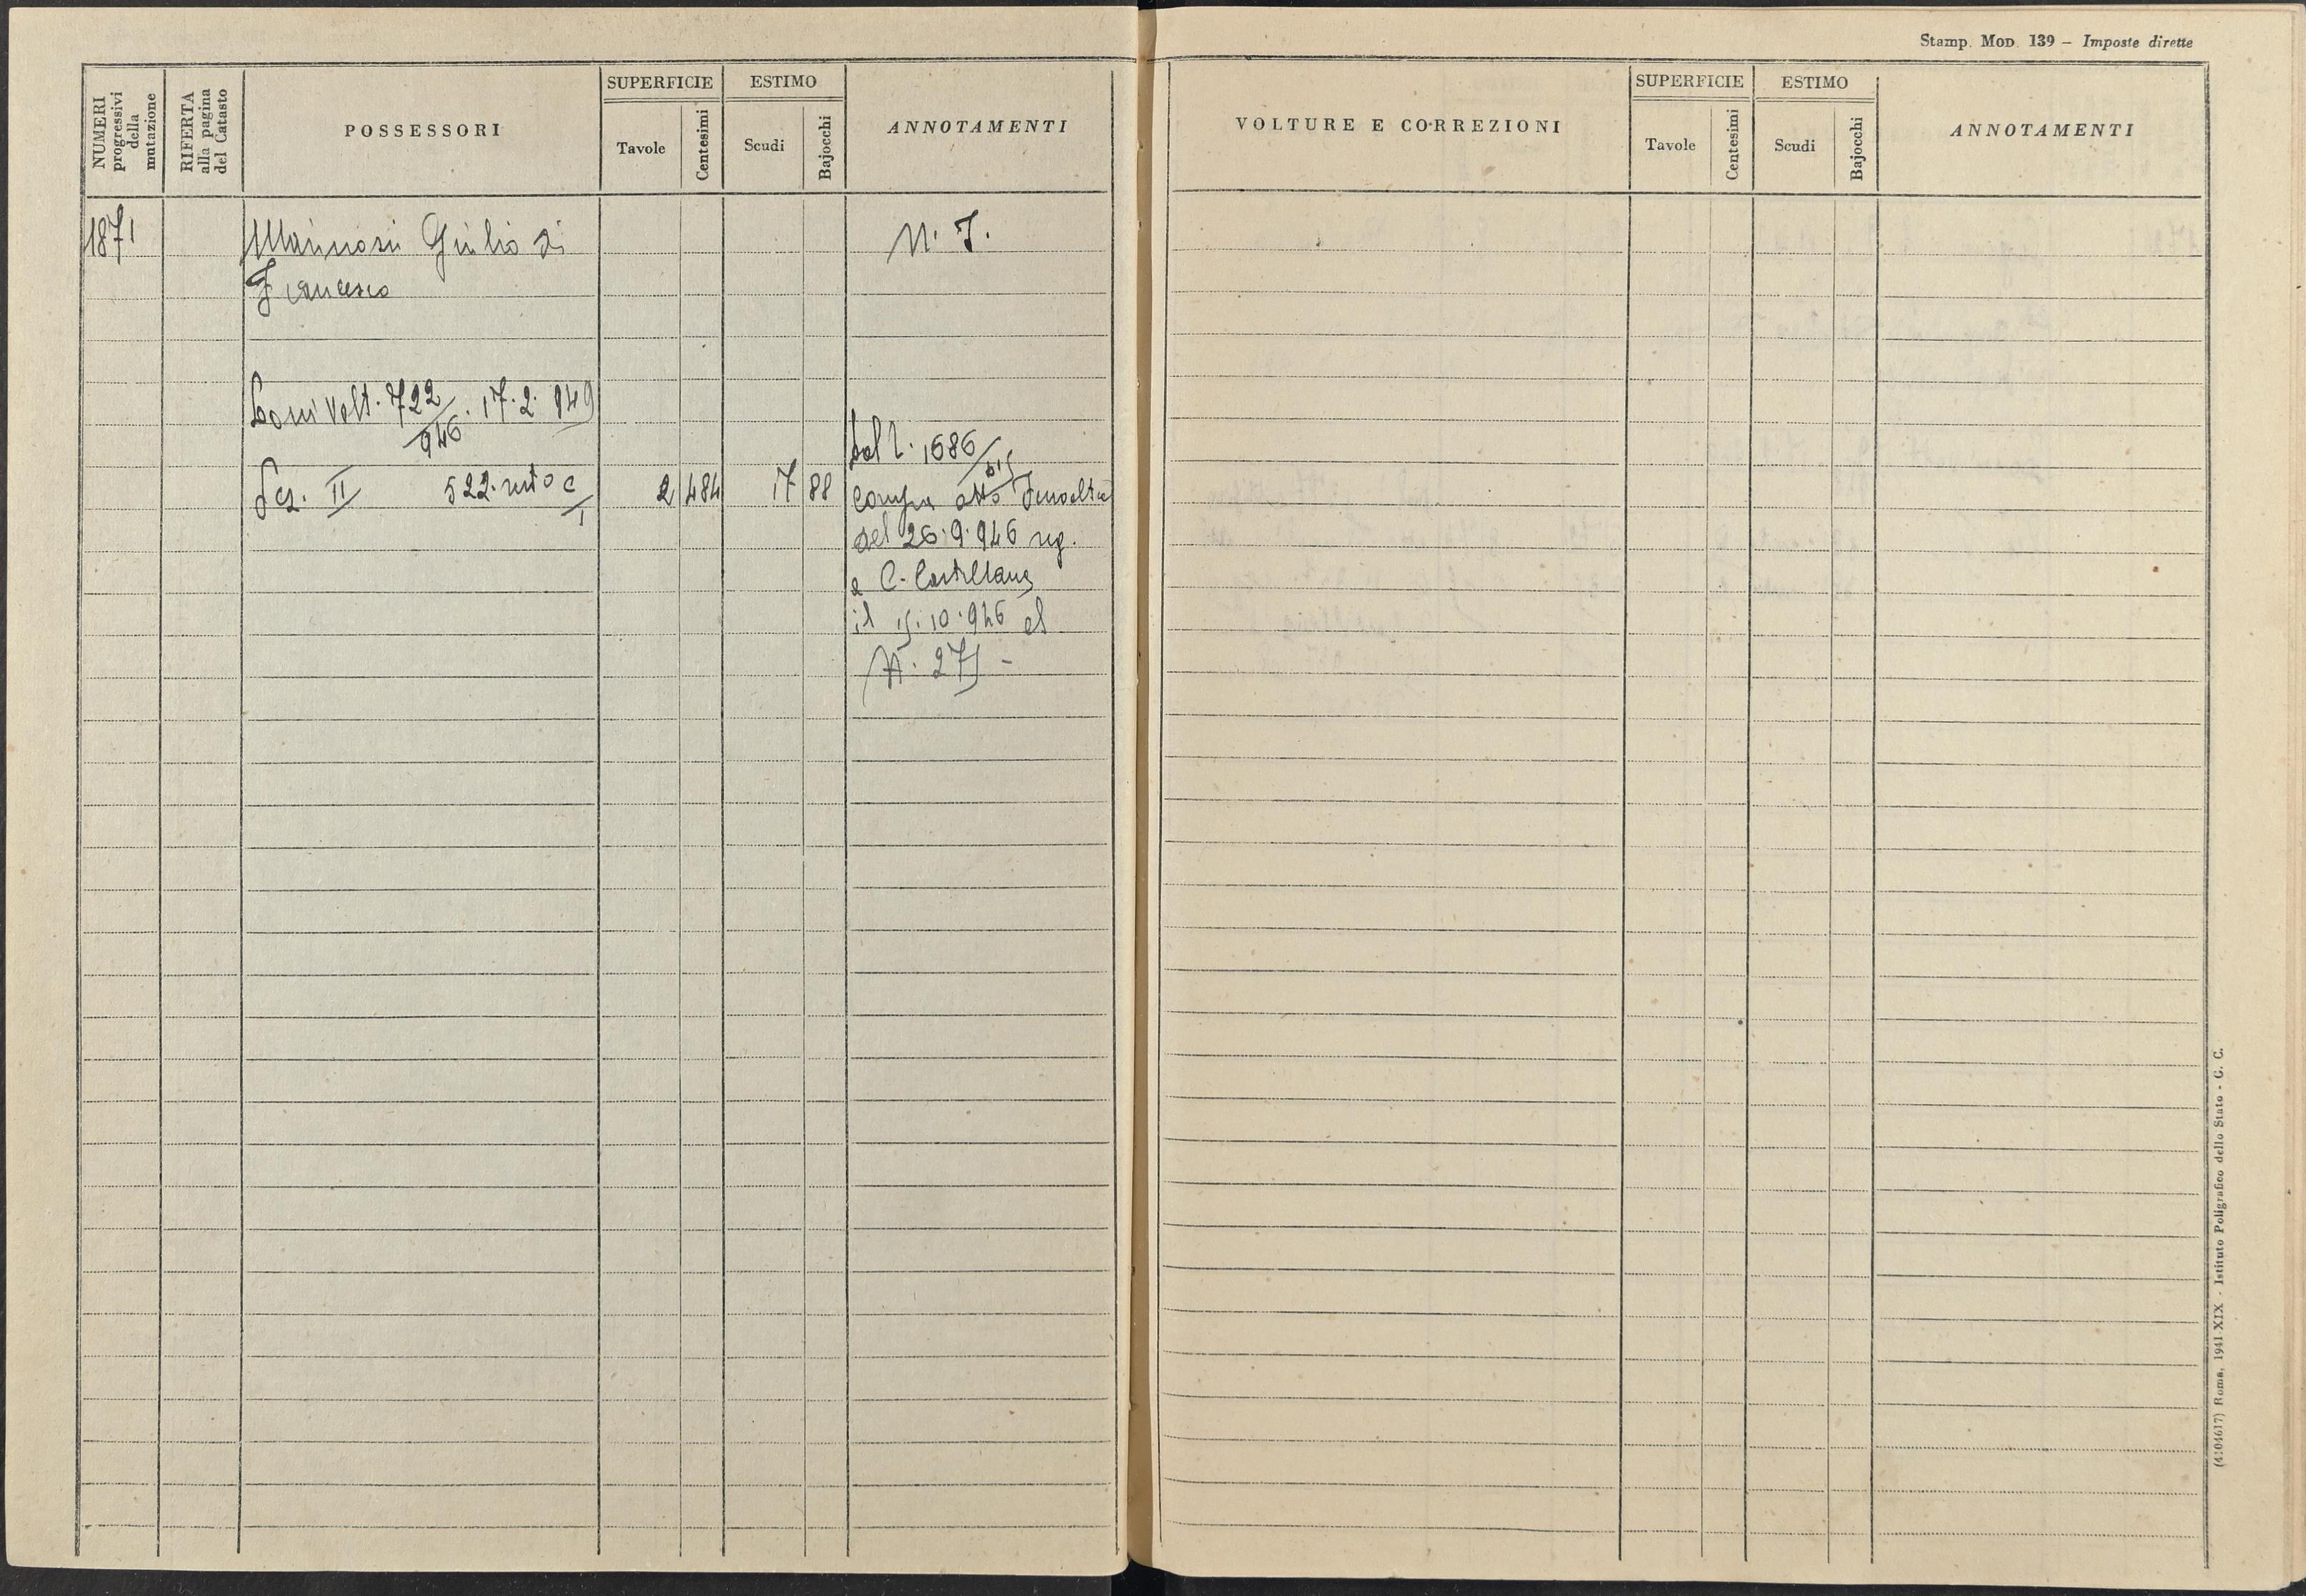 Stamp. Mod. 139 – Imposte dirette
NUMERI progressivi della mutazione
RIFERTA alla pagina del Catasto
POSSESSORI
SUPERFICIE
Tavole
Centesimi
ESTIMO
Scudi
Bajocchi
ANNOTAMENTI
VOLTURE E CORREZIONI
SUPERFICIE
Tavole
Centesimi
ESTIMO
Scudi
Bajocchi
ANNOTAMENTI
1871
Giulio di
N. I.
Francesco
Volt. 722/946. 17. 2. 949
Dal 1686/bis
Sez. II 522. resto c/1 2 484 17 88
Compra atto
del 26. 9. 946 reg.
a C. Castellana
il 15. 10. 946 al
N. 275 –
(4104617) Roma, 1941 XIX - Istituto Poligrafico dello Stato - G. C.